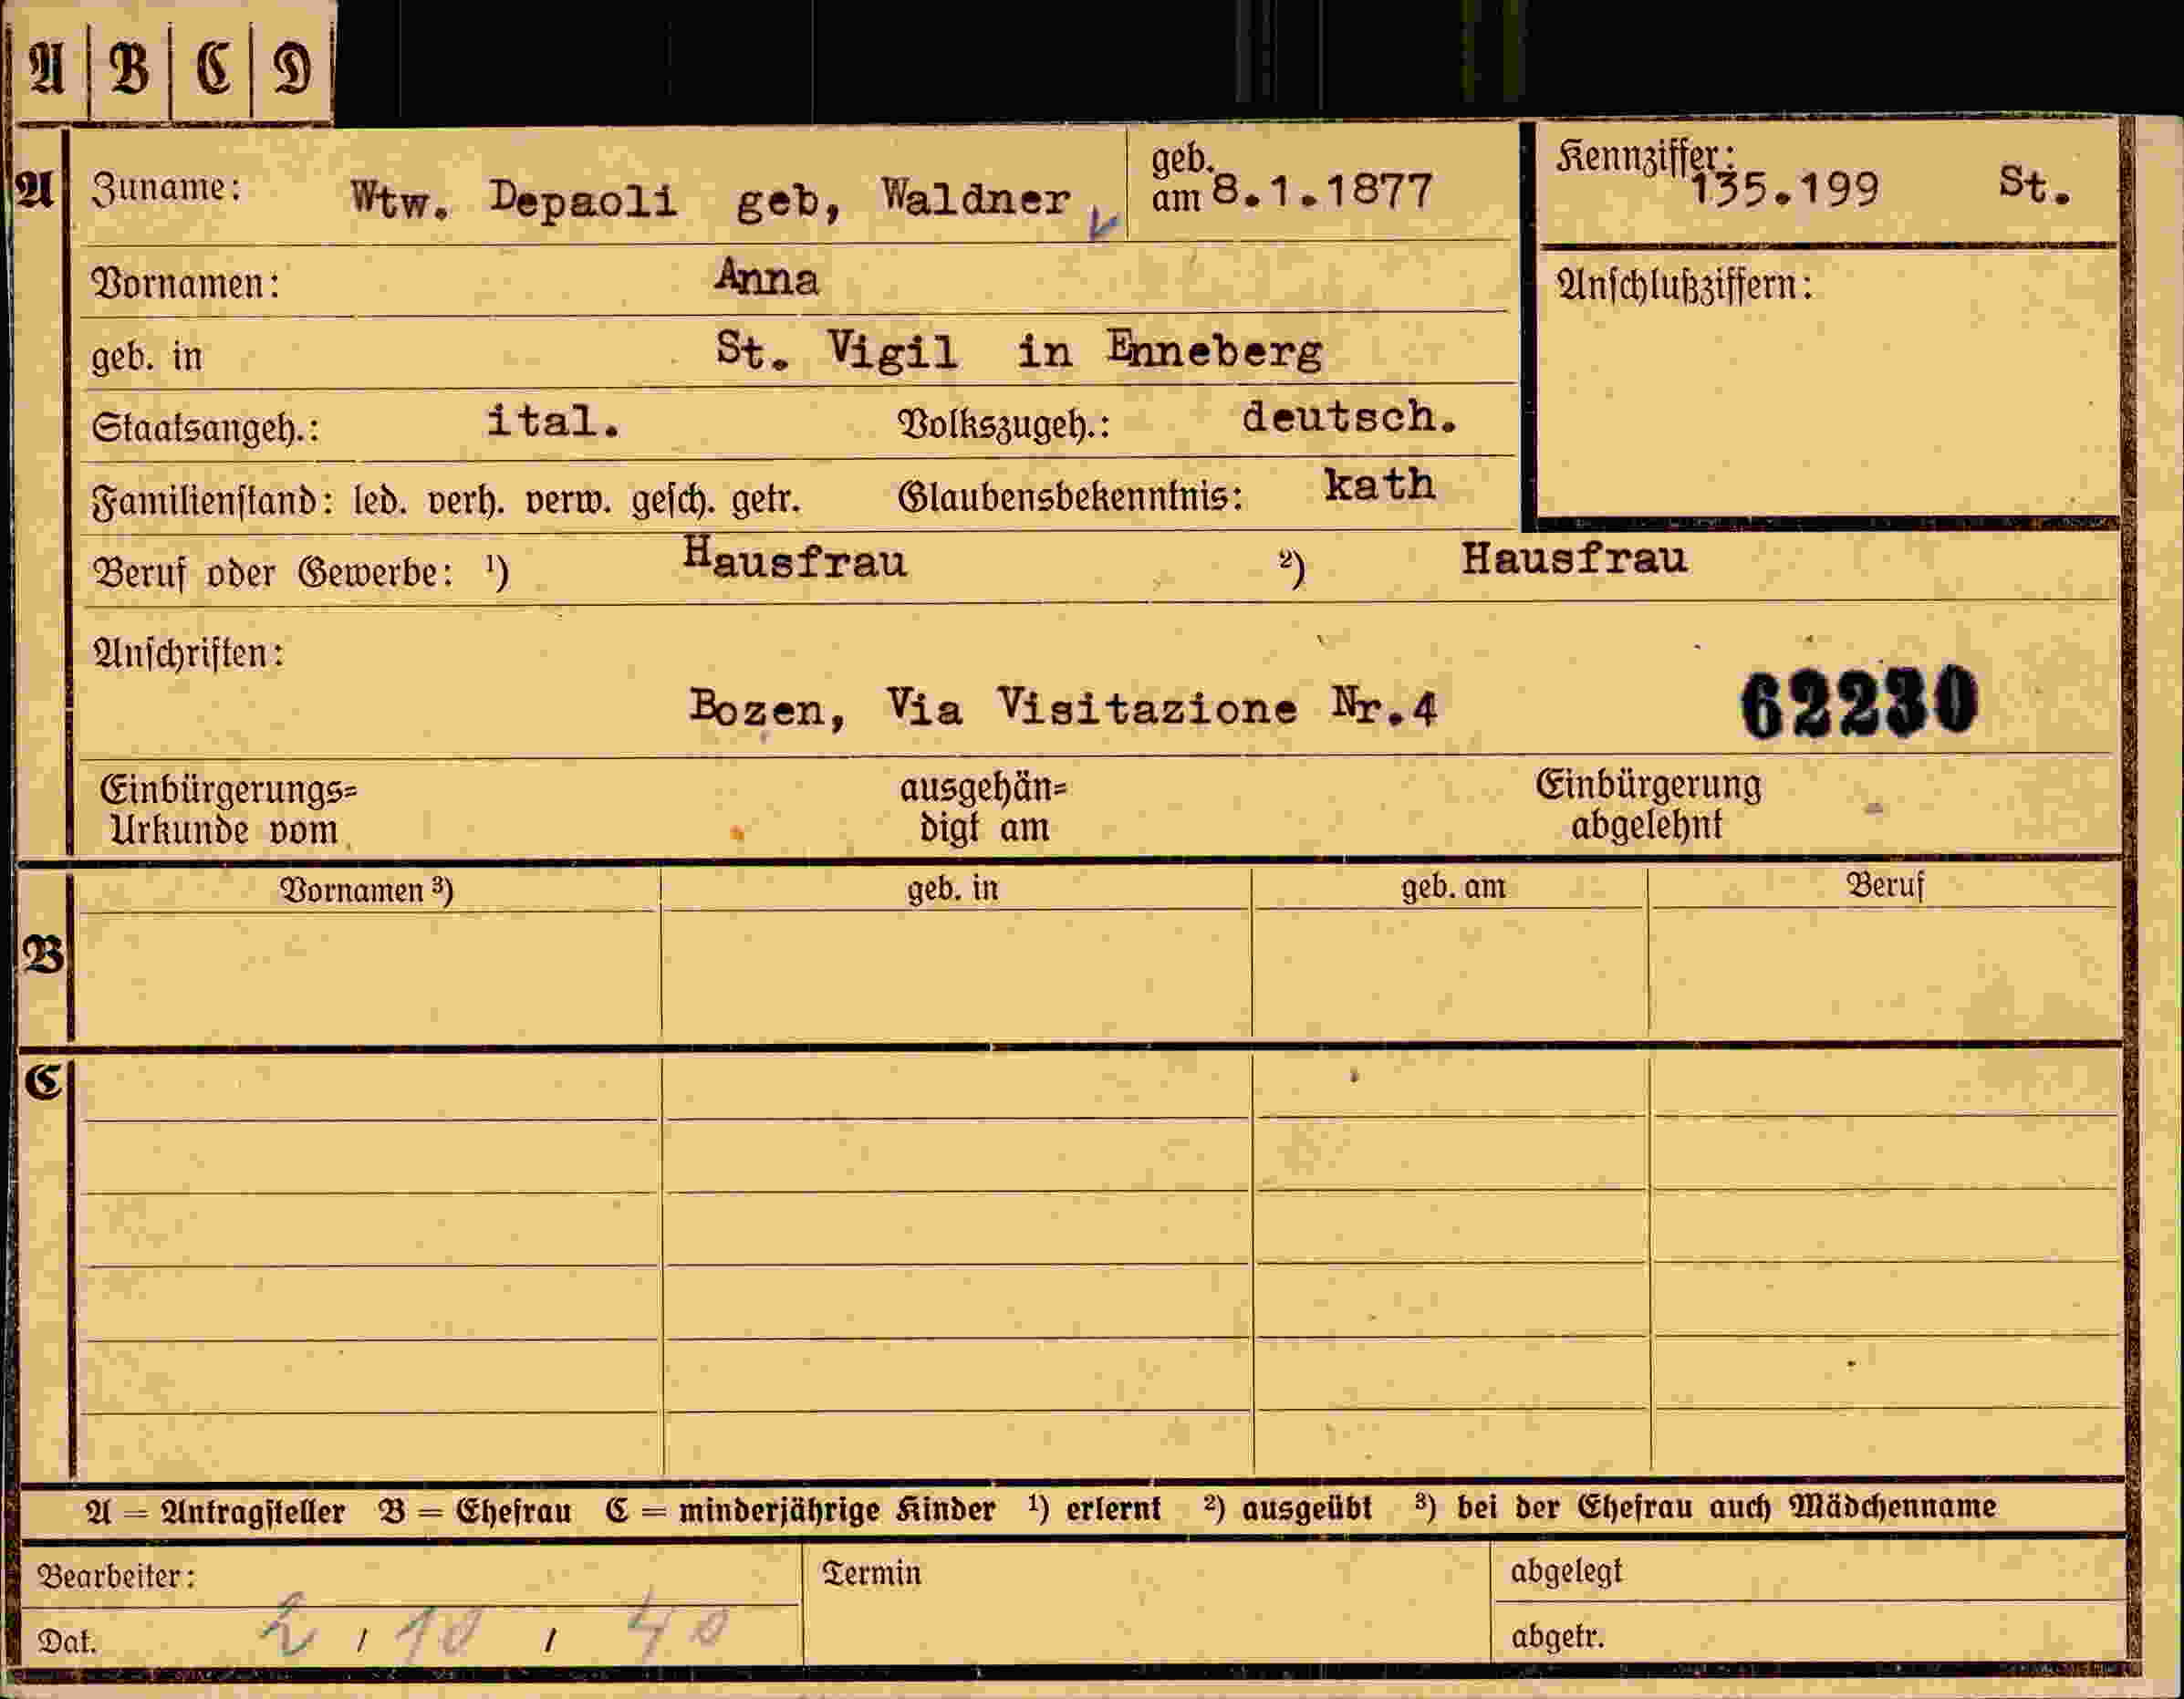 A B C D
A Zuname: Wtw. Depaoli geb, Waldner geb. am 8.1.1877 Kennziffer: 135.199 St.
Vornamen: Anna Anschlußziffern:
geb. in St. Vigil in Enneberg
Staatsangeh.: ital. Volkszugeh.: deutsch.
Familienstand: led. verh. verw. gesch. getr. Glaubensbekenntnis: kath
Beruf oder Gewerbe: ¹) Hausfrau ²) Hausfrau
Anschriften:
Bozen, Via Visitazione Nr.4 62230
Einbürgerungs= ausgehän= Einbürgerung
Urkunde vom digt am abgelehnt
Vornamen ³) geb. in geb. am Beruf
B
C
A = Antragsteller B = Ehefrau C = minderjährige Kinder ¹) erlernt ²) ausgeübt ³) bei der Ehefrau auch Mädchenname
Bearbeiter: Termin abgelegt
Dat. 2 / 10 / 40 abgetr.